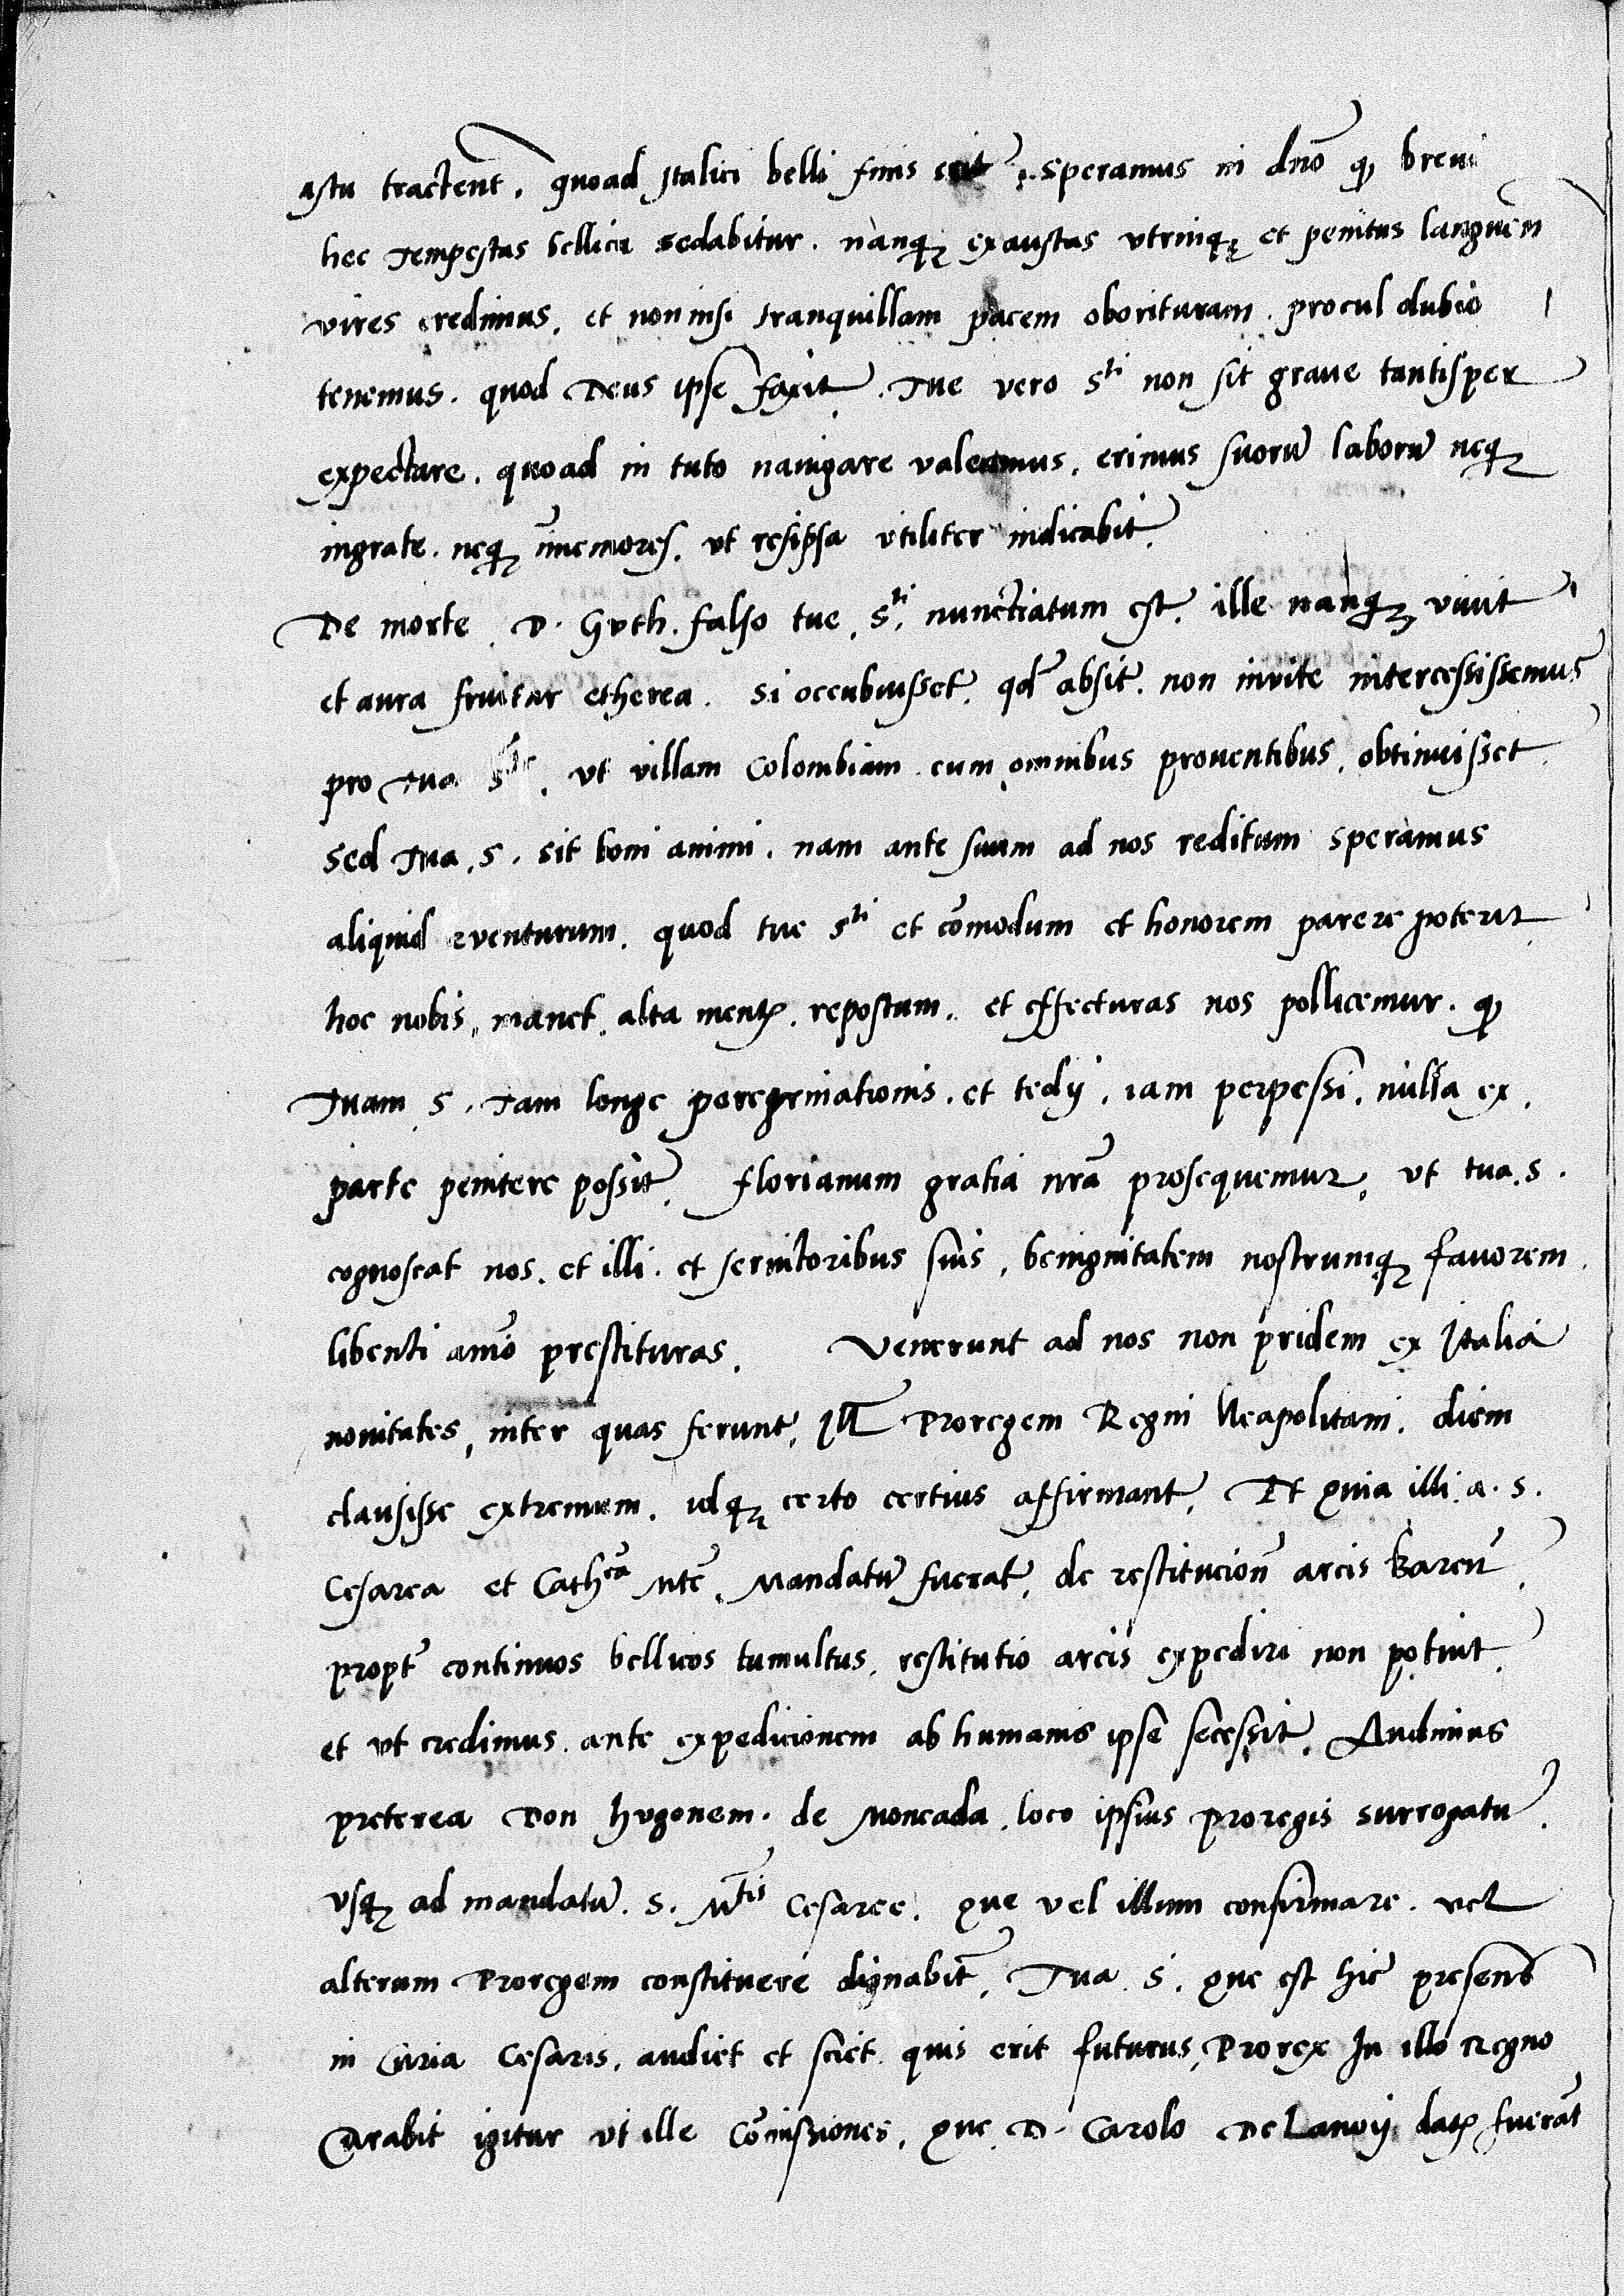 astu tractent. quoad Italici belli finis erit. speramus in dno q brevi
hec tempestas bellica sedabitur. nanq exaustas utrinq et penitus languen
vires credimus. et non nisi tranquillam pacem oborituram. procul dubio
tenemus. quod Deus ipse faxit. Tue vero s^ti non sit grave tantisper
expectare. quoad in tuto navigare valeamus. erimus suoru laboru neq
ingrate. neq immemores. ut resipsa utiliter indicabit.
De morte D. Gvth. falso tue s^ti. nunctiatum est. ille nanq vivit
et aura fruitur etherea. Si occubuisset. qd absit. non invite intercessissemus
pro Tua s. ut villam Colombiam cum omnibus proventibus. obtinuisset.
Sed Tua. s. sit boni animi. nam ante suum ad nos reditum speramus
aliquid eventurum. quod tue s^ti et comodum et honorem parere poterit
hoc nobis. manet. alta mente. repostum. et effecturas nos pollicemur. q
Tuam s. tam longe peregrinationis. et tedij. iam perpessi. nulla ex.
parte penitere possit. Florianum gratia nra prosequemur. ut tua. s.
cognoscat nos. et illi. et servitoribus suis. benignitatem nostrumq favorem.
libenti animo prestituras. Venerunt ad nos non pridem ex Italia
novitates, inter quas ferunt, Ill Proregem Regni Neapolitani. diem
clausisse extremum. idq certo certius affirmant. Et quia illi. a. s.
Cesarea et Cath^ca Mte. Mandatu fuerat. de restitucion arcis Baren.
propt continuos bellicos tumultus. restitutio arcis expediri non potuit.
et ut credimus. ante expedicionem ab humanis ipse secessit. Audimus
preterea Don hugonem. de Moncada. loco ipsius proregis surrogatu.
usq ad mandatu. s. M^tis Cesaree. que vel illum confirmare. vel
alterum Proregem constituere dignabit. Tua. s. que est hic presens
in Curia Cesaris. audiet et sciet quis erit futurus Prorex In illo regno
Curabit igitur ut ille Comissiones. que D. Carolo De Lanoij date fuerat